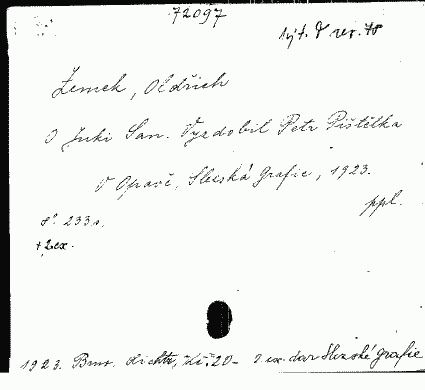 72097
Zemek, Oldřich
O Juki San. Vyzdobil Petr Pištělka
V Opavě, Slezská Grafie, 1923.
ppl.
8° 233a.
+2.ex.
1923. Brno. Kč: 20- 2 ex. dar Slezské grafie